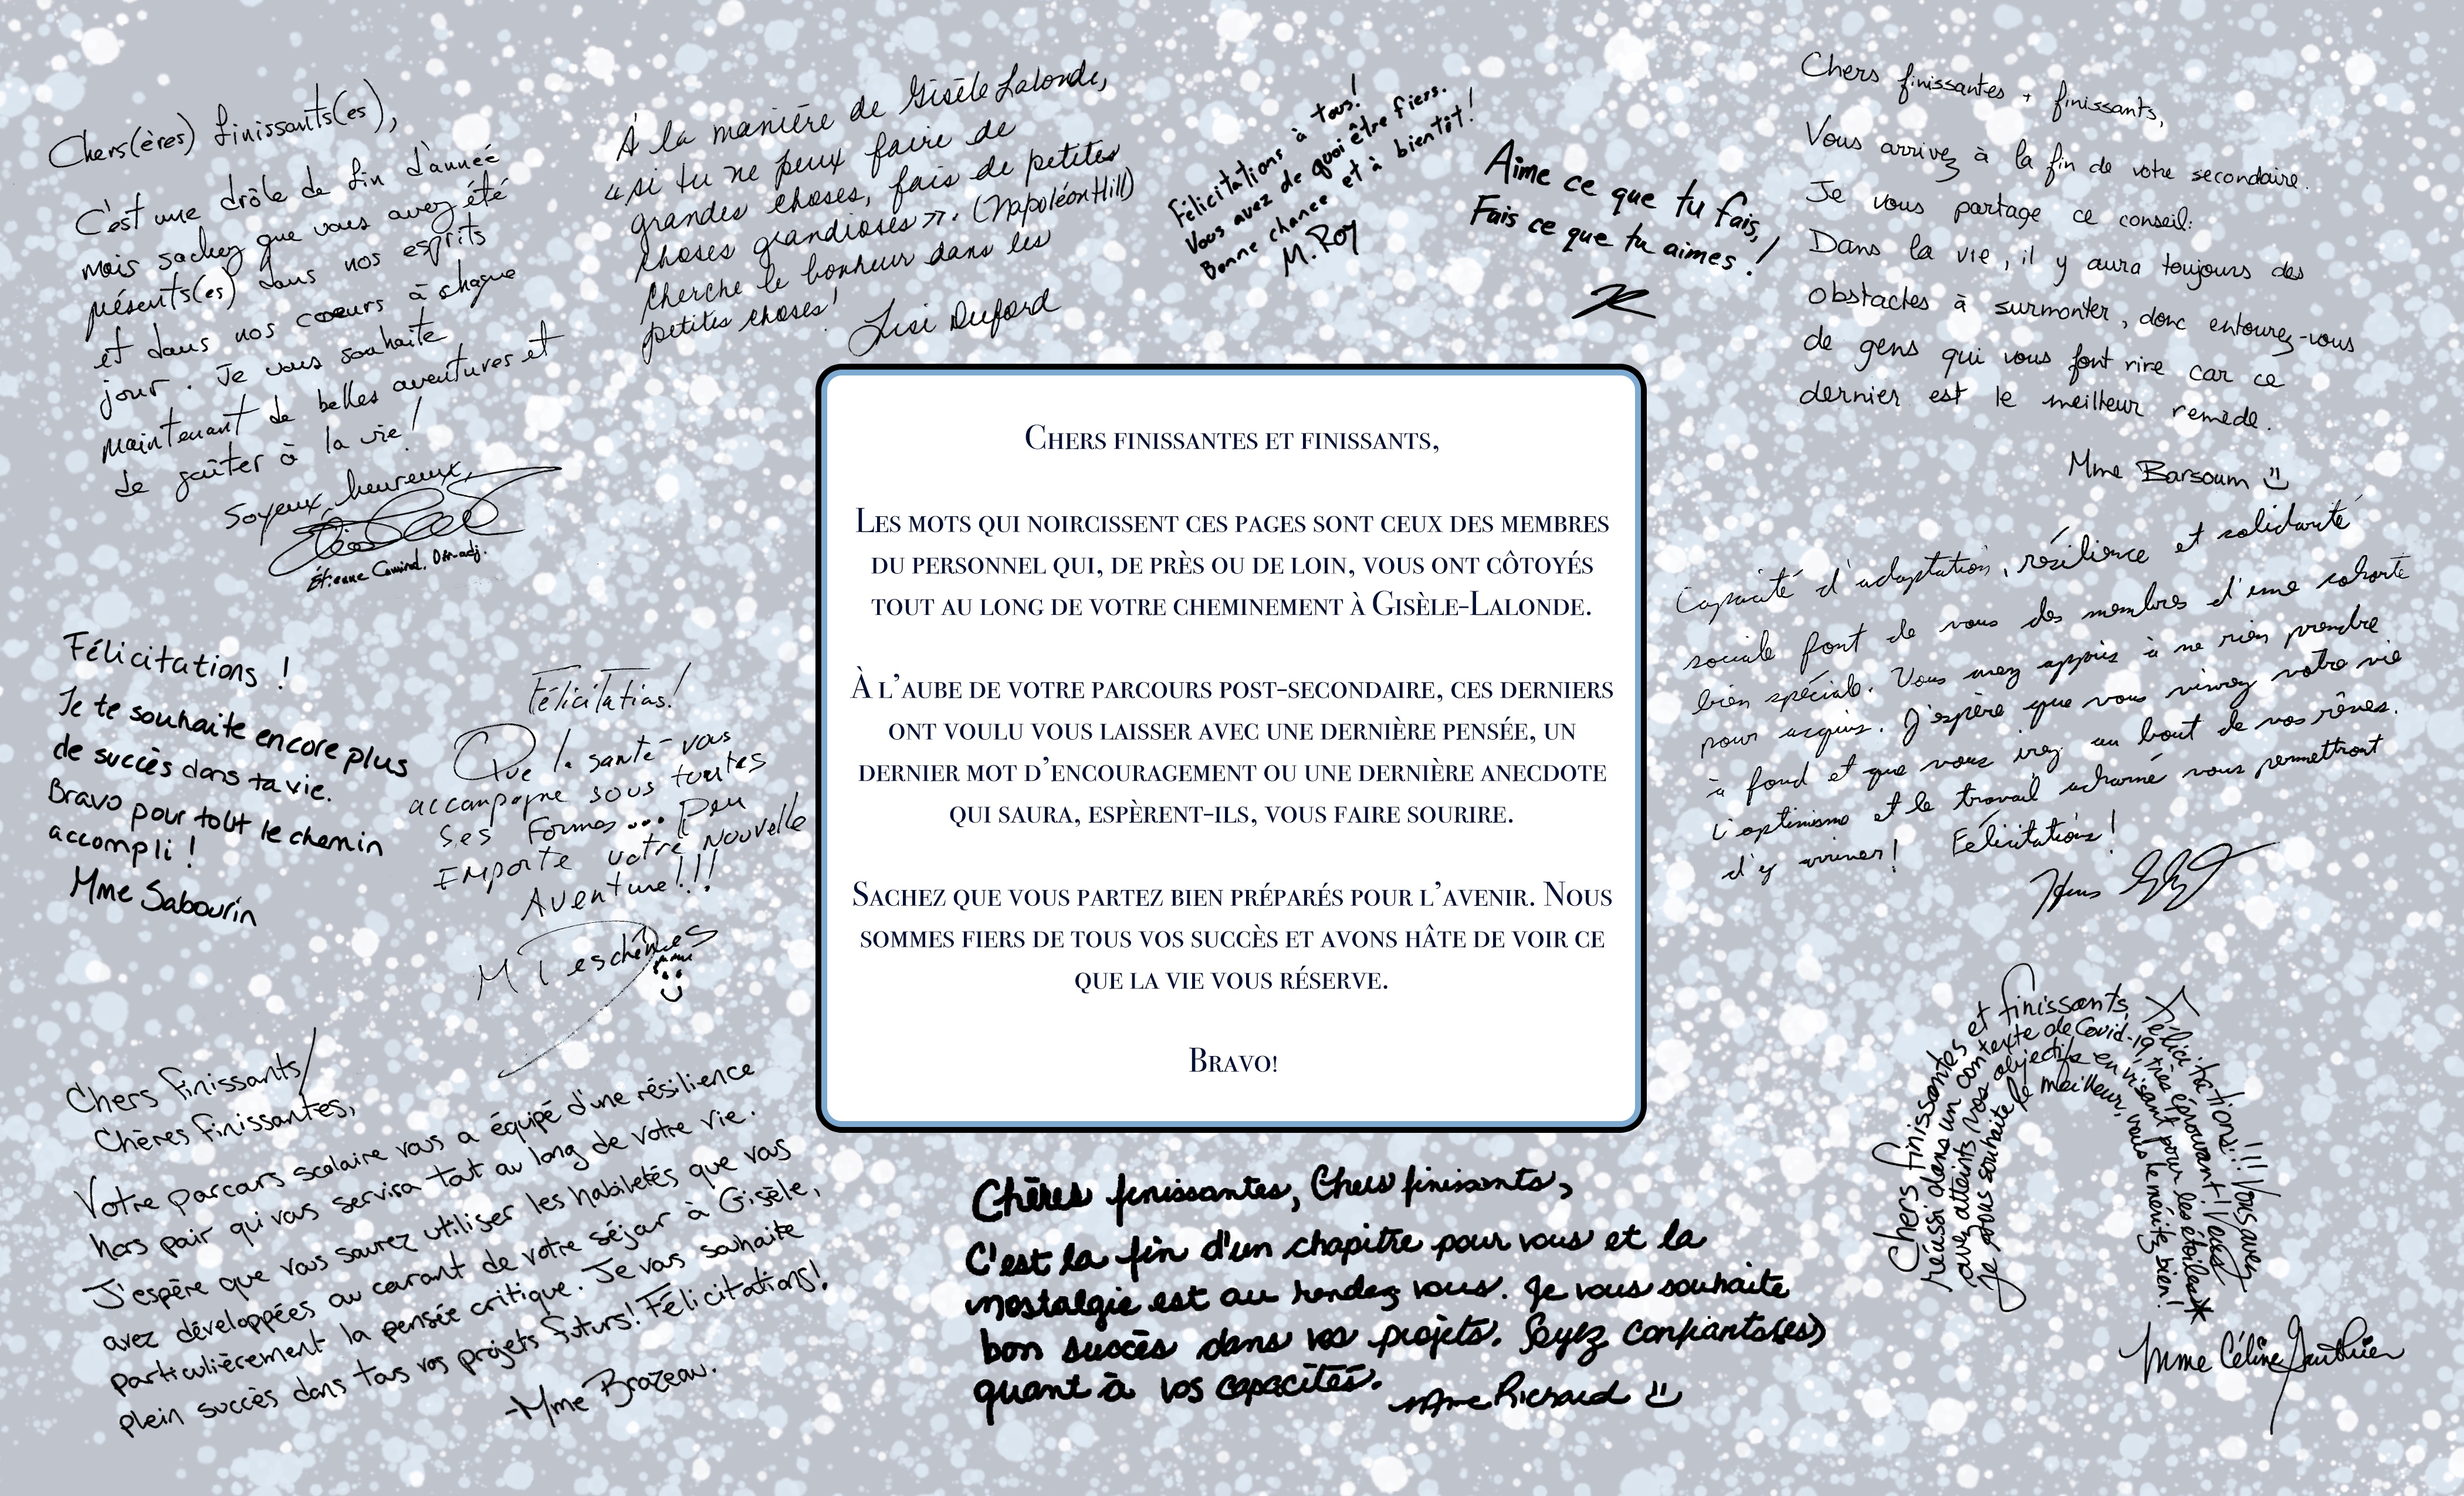 Chers(ères) finissants(es),
C'est une drôle de fin d'année
mais sachez que vous avez été
présents(es) dans nos esprits
et dans nos coeurs à chaque
jour. Je vous souhaite
maintenant de belles aventures et
de goûter à la vie!
Soyeux, heureux,
Étienne
À la manière de Gisèle Lalonde,
"si tu ne peux faire de
grandes choses, fais de petites
choses grandioses". (Napoléon Hill)
Cherche le bonheur dans les
petites choses!
Lisi Duford
Félicitations à tous!
Vous avez de quoi être fiers.
Bonne chance et à bientôt!
M. Roy
Aime ce que tu fais,
Fais ce que tu aimes!
Chers finissantes + finissants,
Vous arrivez à la fin de votre secondaire.
Je vous partage ce conseil:
Dans la vie, il y aura toujours des
obstacles à surmonter, donc entourez-vous
de gens qui vous font rire car ce
dernier est le meilleur remède.
Mme Barsoum
Félicitations !
Je te souhaite encore plus
de succès dans ta vie.
Bravo pour tout le chemin
accompli !
Mme Sabourin
Félicitations!
Que la santé vous
accompagne sous toutes
ses formes... Peu
Importe votre nouvelle
Aventure!!!
M Deschênes
Chers finissantes et finissants,
Les mots qui noircissent ces pages sont ceux des membres
du personnel qui, de près ou de loin, vous ont côtoyés
tout au long de votre cheminement à Gisèle-Lalonde.
À l'aube de votre parcours post-secondaire, ces derniers
ont voulu vous laisser avec une dernière pensée, un
dernier mot d'encouragement ou une dernière anecdote
qui saura, espèrent-ils, vous faire sourire.
Sachez que vous partez bien préparés pour l'avenir. Nous
sommes fiers de tous vos succès et avons hâte de voir ce
que la vie vous réserve.
Bravo!
Capacité d'adaptation, résilience et solidarité
sociale font de vous des membres d'une cohorte
bien spéciale. Vous avez appris à ne rien prendre
pour acquis. J'espère que vous vivrez votre vie
à fond et que vous irez au bout de vos rêves.
L'optimisme et le travail acharné vous permettront
d'y arriver! Félicitations!
Chers finissants/
Chères finissantes,
Votre parcours scolaire vous a équipé d'une résilience
hors pair qui vous servira tout au long de votre vie.
J'espère que vous saurez utiliser les habiletés que vous
avez développées au courant de votre séjour à Gisèle,
particulièrement la pensée critique. Je vous souhaite
plein succès dans tous vos projets futurs! Félicitations!
-Mme Brazeau.
Chères finissantes, Chers finissants,
C'est la fin d'un chapitre pour vous et la
nostalgie est au rendez vous. Je vous souhaite
bon succès dans vos projets. Soyez confiants(es)
quant à vos capacités.
Mme Richard
Chers finissantes et finissants, Félicitations!!! Vous avez
réussi dans un contexte de Covid-19, très éprouvant! Vous
avez atteints vos objectifs en visant pour les étoiles
Je vous souhaite le meilleur, vous le mérite bien!
Mme Céline Gauthier